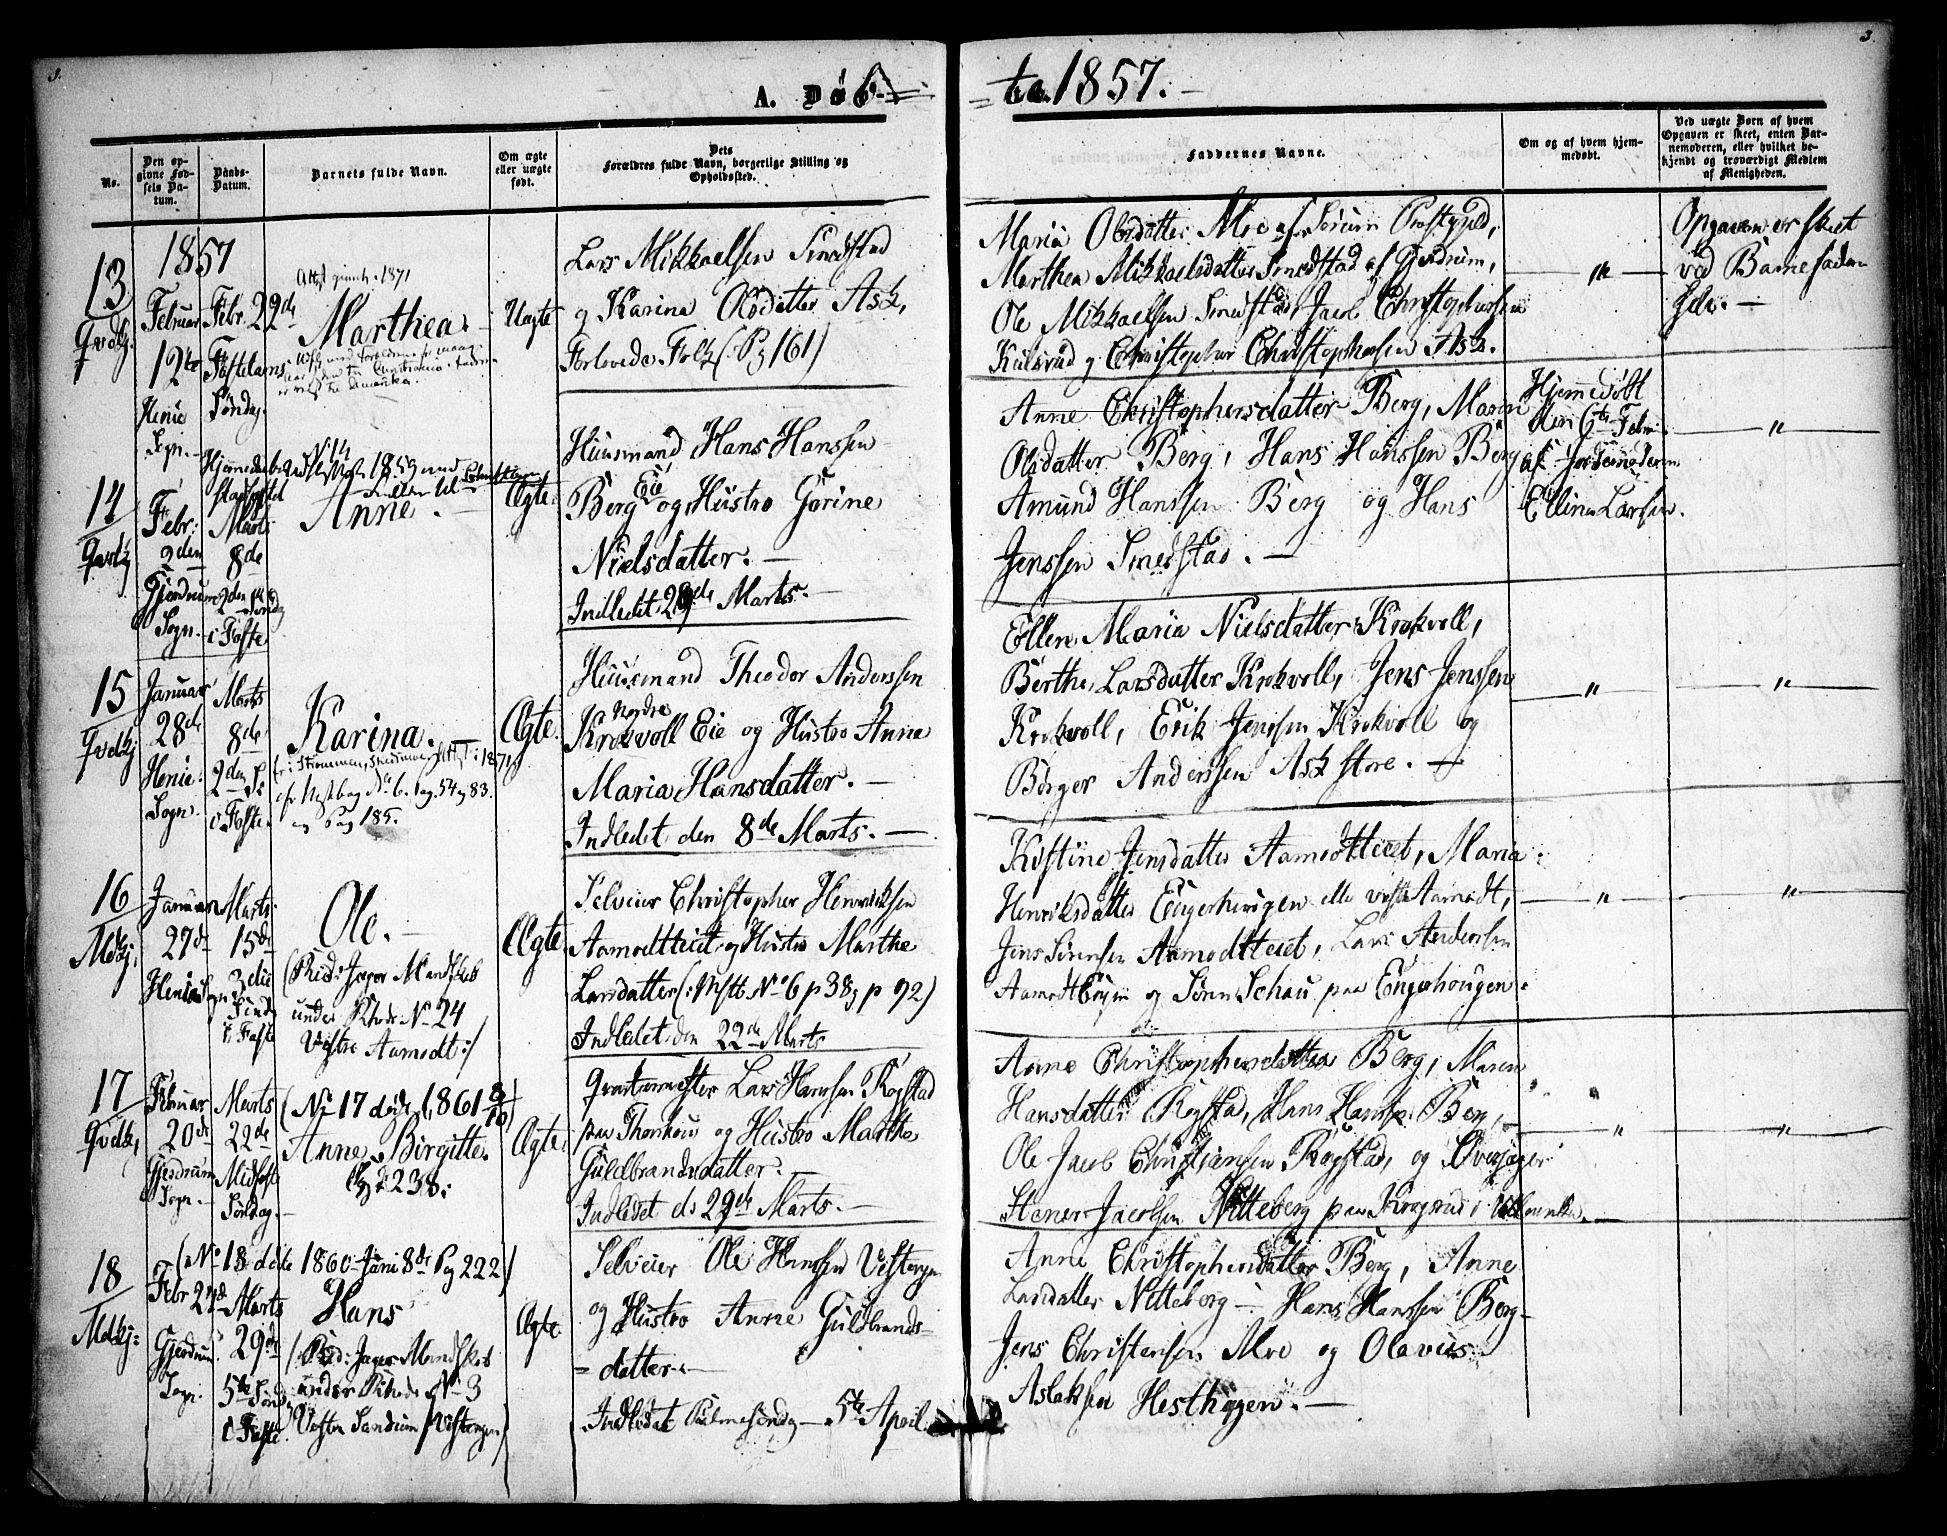 3.
3.
A. Døb-
=te. 1857.-
No.
Den opgivne Fødsels Datum.
Daabs-Datum.
Barnets fulde Navn.
Om ægte eller uægte født.
Dets Forældres fulde Navn, borgerlige Stilling og Opholdssted.
Faddernes Navne.
Om og af hvem hjemmedøbt.
Ved uægte Børn af hvem Opgaven er skeet, enten Barnemoderen, eller hvilket bekjendt og troværdigt Medlem af Menigheden.
13
1857
Februar
12te
Henie
Sogn.
Febr. 22de
Fastelavns
Søndag.
1871
Marthea.
Uægte
Lars Mikkaelsen Smedstad
og Karina Olsdatter Ask,
Forlovede Folk (Pg 161)
Maria Olsdatter Moe af Sørum Præstegjeld,
Marthea Mikkaelsdatter Smedstad af Gjerdrum,
Ole Mikkaelsen Smedstad, Jacob Christophersen
Kulsrud og Christopher Christophersen Ask.
"
Opgaven er skeet
ved Barnefaderen
selv.-
14
Febr:
2den
Gjerdrum
Sogn.
Marts
8de
2den S
i Faste
Anne.-
Ægte
Huusmand Hans Hanssen
Berg Eie og Hustro Gorine
Nielsdatter.-
Indledet 29de Marts.-
Anne Christophersdatter Berg, Maren
Olsdatter Berg, Hans Hanssen Berg
Amund Hanssen Berg og Hans
Jenssen Smedstad.-
Hjemmedøbt
den 6te Febr.
af Jordemoderen
Ellen Larsen.
"
15
Januar
28de
Henie
Sogn.
Marts
8de
2den S
i Faste
Karina.-
No 6. Pag. 54 og 83.
og Pag 185.
Ægte.
Huusmand Theodor Anderssen
Nordre
Krokvoll Eie og Hustro Anna
Maria Hansdatter.-
Indledet den 8de Marts.-
Ellen Maria Nielsdatter Krokvoll,
Berthe Larsdatter Krokvoll, Jens Jenssen
Krokvoll, Erik Jenssen Krokvoll og
Børger Anderssen Ask store.-
"
"
16
Mdkj.
Januar
27de
Henie
Marts
15de
3die
Sønd
i Faste
Ole.-
(Rid: Jæger Mandskab
under Rhode No 24
Vestre Aamodt:/
Ægte
Selveier Christopher Henriksen
Aamodtteiet og Hustro Marthe
Larsdatter (: No 6 p 38 og p 92)
Indledet den 22de Marts
Kistine Jensdatter Aamodtteiet, Maria
Henriksdatter Engerhougen eller vestre Aamodt,
Jens Sørensen Aamodtteiet, Lars Anderssen
og Søren Schau paa Engerhougen.
"
"
17
Februar
20de
Gjerdrum
Sogn.-
Marts
22de
Midfaste
Søndag.-
(No 17 døde 1861 8/10)
Anne Birgitte.
Pag 238.
Ægte.
Qvartermester Lars Hanssen Rogstad
paa Thonhoug og Hustro Marthe
Guldbrandsdatter.-
Indledet d: 29de Marts.-
Anne Christophersdatter Berg, Maren
Hansdatter Rogstad, Hans Hanssen Berg,
Ole Jacob Christiansen Rogstad, og Overjæger
Stener Jacobsen Nitteberg paa Krogsrud i
"
"
18
Mdkj:
(No 18 døde 1860 Juni 8de Pag 222)
Febr 27de
Gjerdrum
Sogn.
Marts
29de
5te Sønd
i Faste.
Hans
(Rid: Jæger Mandskab
under Rhode No 3
Vestre Sandum
Ægte
Selveier Ole Hanssen
og Hustro Anne Guldbrands-
=datter.-
Indledet Palmesøndag 5te April.
Anne Christophersdatter Berg, Anne
Larsdatter Nitteberg- Hans Hanssen Berg-
Jens Christensen Moe og Olavus
Aslaksen Hesthagen.-